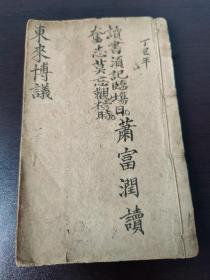 丁巳年
讀書須記臨場日
奮志莫忘觀榜時
蕭富潤讀
東來博議